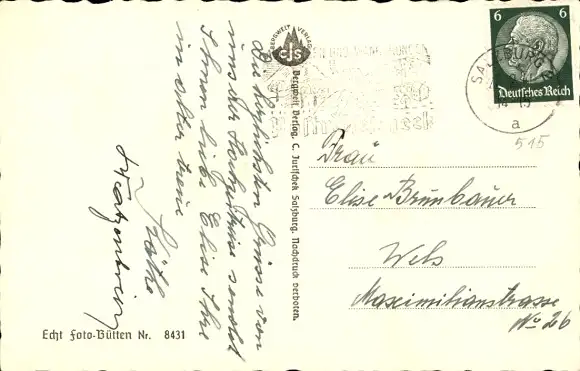 Die herzlichsten Grüsse von
uns der Hochstrasse sendet
Ihnen liebe Elise Ihre
in alter treue
Käthe
BERGWELT VERLAG
CJS
Bergwelt Verlag, C. Jurischek Salzburg. Nachdruck verboten.
6 6
Deutsches Reich
SALZBURG
a
515
Frau
Elise Brunbauer
Wels
Maximilianstrasse
No 26
Echt Foto-Bütten Nr. 8431